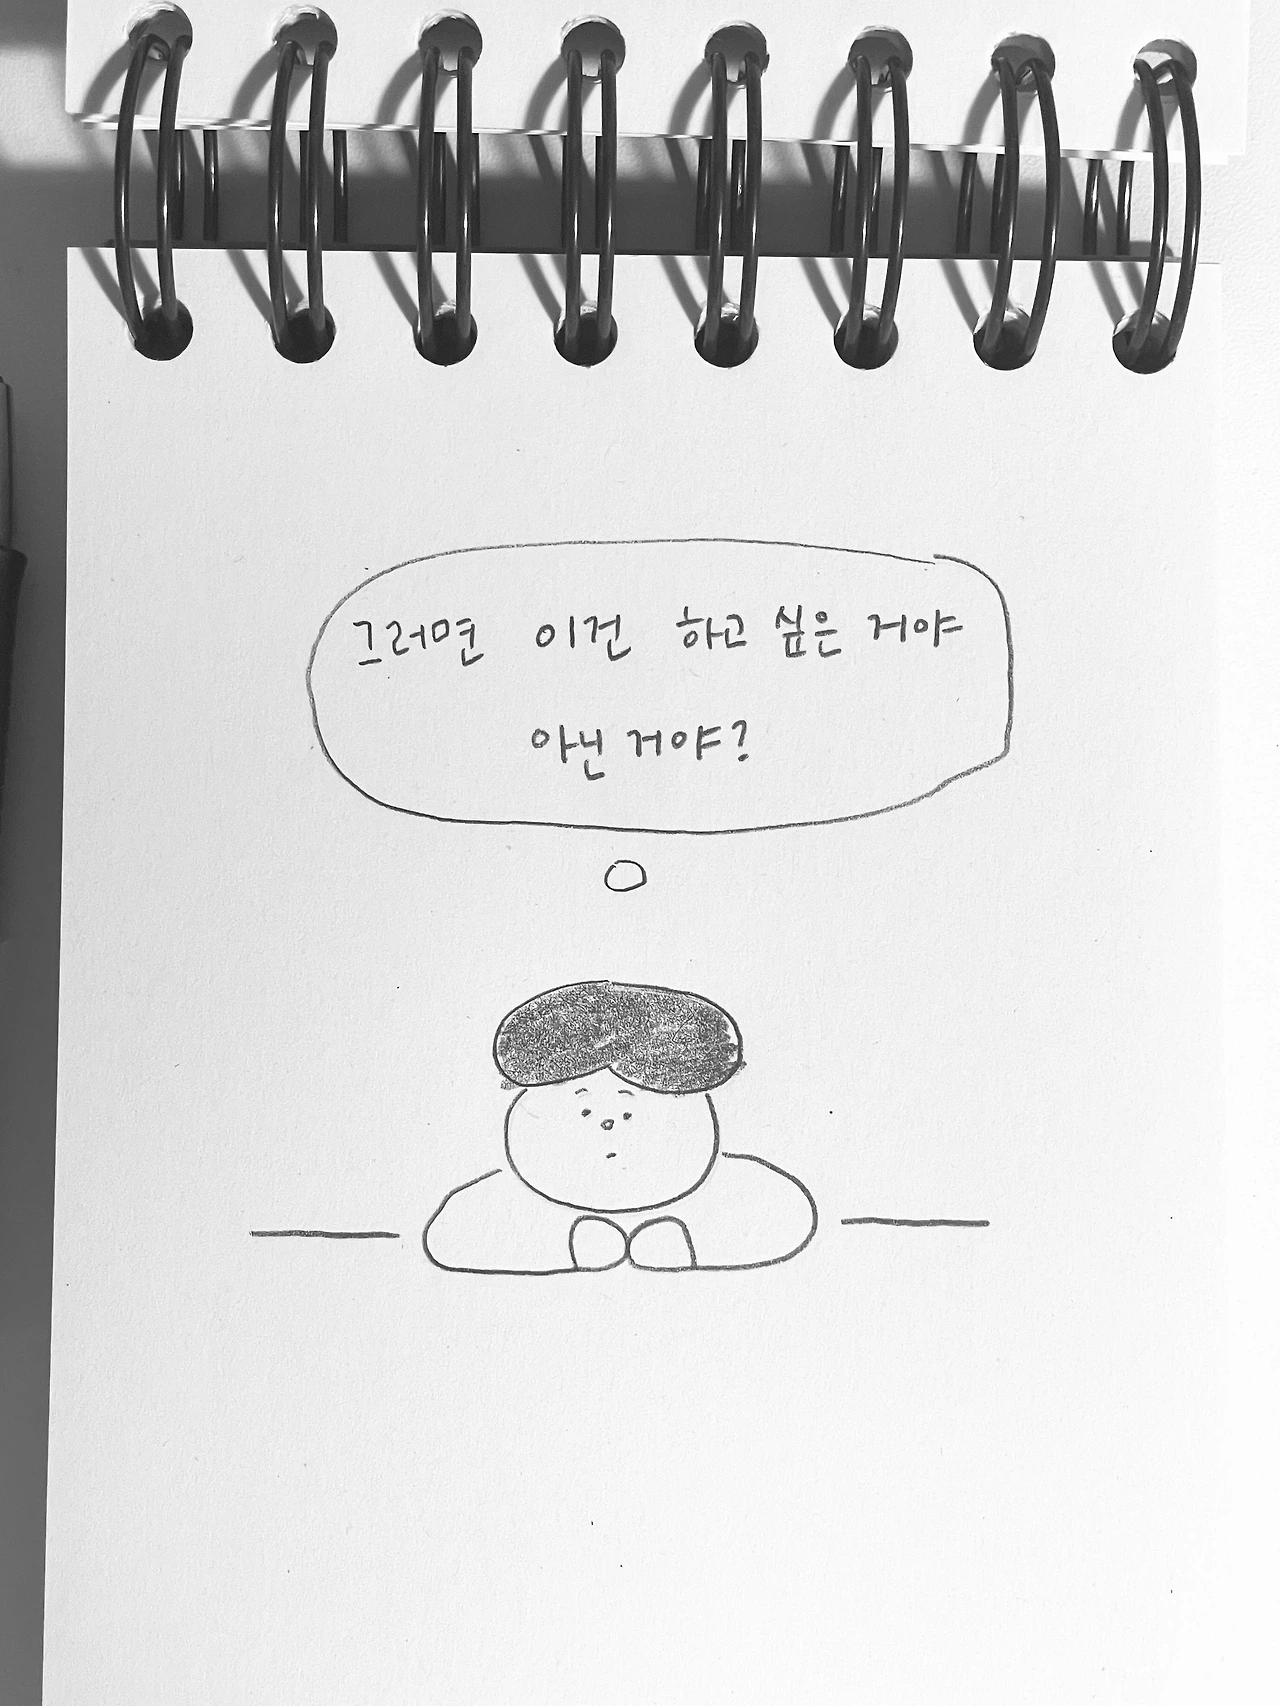 그러면 이건 하고 싶은 거야
아닌 거야?